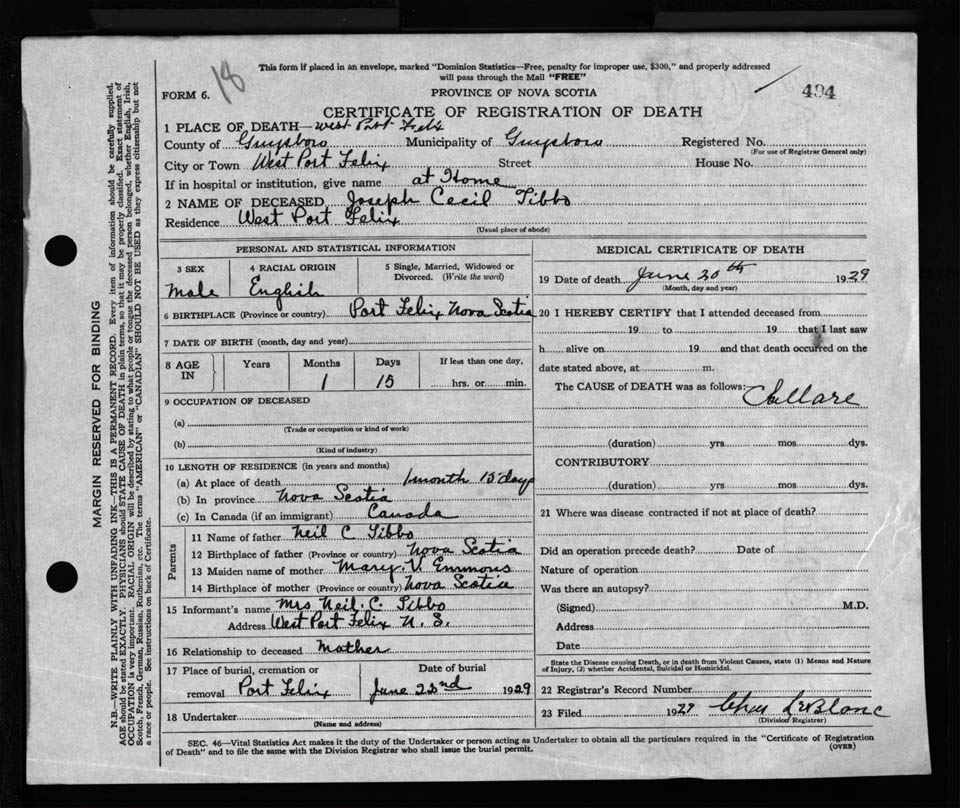 This form if placed in an envelope, marked "Dominion Statistics—Free, penalty for improper use, $300," and properly addressed
will pass through the Mail "FREE"
18
FORM 6.
PROVINCE OF NOVA SCOTIA
494
CERTIFICATE OF REGISTRATION OF DEATH
1 PLACE OF DEATH— West Port Felix
County of Guysboro Municipality of Guysboro Registered No.
(For use of Registrar General only)
City or Town West Port Felix Street House No.
If in hospital or institution, give name at Home
2 NAME OF DECEASED Joseph Cecil Tibbo
Residence West Port Felix
(Usual place of abode)
PERSONAL AND STATISTICAL INFORMATION
3 SEX 4 RACIAL ORIGIN 5 Single, Married, Widowed or
Divorced. (Write the word)
Male English
6 BIRTHPLACE (Province or country) Port Felix Nova Scotia
7 DATE OF BIRTH (month, day and year)
8 AGE IN Years Months Days If less than one day,
1 15 hrs. or min.
9 OCCUPATION OF DECEASED
(a)
(Trade or occupation or kind of work)
(b)
(Kind of industry)
10 LENGTH OF RESIDENCE (in years and months)
(a) At place of death 1 month 15 days
(b) In province Nova Scotia
(c) In Canada (if an immigrant) Canada
Parents
11 Name of father Neil C Tibbo
12 Birthplace of father (Province or country) Nova Scotia
13 Maiden name of mother Mary. V. Emmons
14 Birthplace of mother (Province or country) Nova Scotia
15 Informant's name Mrs Neil. C. Tibbo
Address West Port Felix N. S.
16 Relationship to deceased Mother
17 Place of burial, cremation or Date of burial
removal Port Felix June 22nd 1929
18 Undertaker
(Name and address)
MEDICAL CERTIFICATE OF DEATH
19 Date of death June 20th 1929
(Month, day and year)
20 I HEREBY CERTIFY that I attended deceased from
19 to 19 that I last saw
h alive on 19 and that death occurred on the
date stated above, at m.
The CAUSE of DEATH was as follows:
(duration) yrs mos dys.
CONTRIBUTORY
(duration) yrs mos dys.
21 Where was disease contracted if not at place of death?
Did an operation precede death? Date of
Nature of operation
Was there an autopsy?
(Signed) M.D.
Address
Date
State the Disease causing Death, or in death from Violent Causes, state (1) Means and Nature
of Injury, (2) whether Accidental, Suicidal or Homicidal.
22 Registrar's Record Number
23 Filed 1929 Chas LeBlanc
(Division Registrar)
SEC. 46—Vital Statistics Act makes it the duty of the Undertaker or person acting as Undertaker to obtain all the particulars required in the "Certificate of Registration
of Death" and to file the same with the Division Registrar who shall issue the burial permit.
(OVER)
MARGIN RESERVED FOR BINDING
N.B.—WRITE PLAINLY WITH UNFADING INK—THIS IS A PERMANENT RECORD. Every item of information should be carefully supplied.
AGE should be stated EXACTLY. PHYSICIANS should STATE CAUSE OF DEATH in plain terms, so that it may be properly classified. Exact statement of
OCCUPATION is very important. RACIAL ORIGIN will be described by stating to what people or tongue the deceased person belonged, whether English, Irish,
Scotch, French, German, Russian, Ruthenian, etc. The terms "AMERICAN" or "CANADIAN" SHOULD NOT BE USED as they express citizenship but not
a race or people. See instructions on back of Certificate.